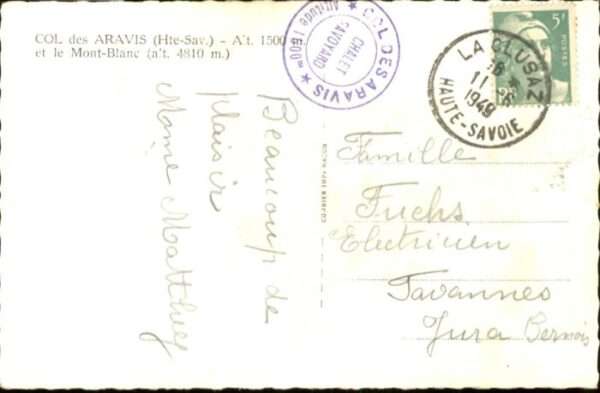 COL des ARAVIS (Hte-Sav.) - A't. 1500 m.
et le Mont-Blanc (a't. 4810 m.)
★ COL DES ARAVIS ★
Altitude 1500m
CHALET
SAVOYARD
5F
POSTES
LA CLUSAZ
16
11 -6
1949
HAUTE-SAVOIE
Beaucoup de
plaisir
Mame Matthey
Famille
Fuchs
Electricien
Tavannes
Jura Bernois